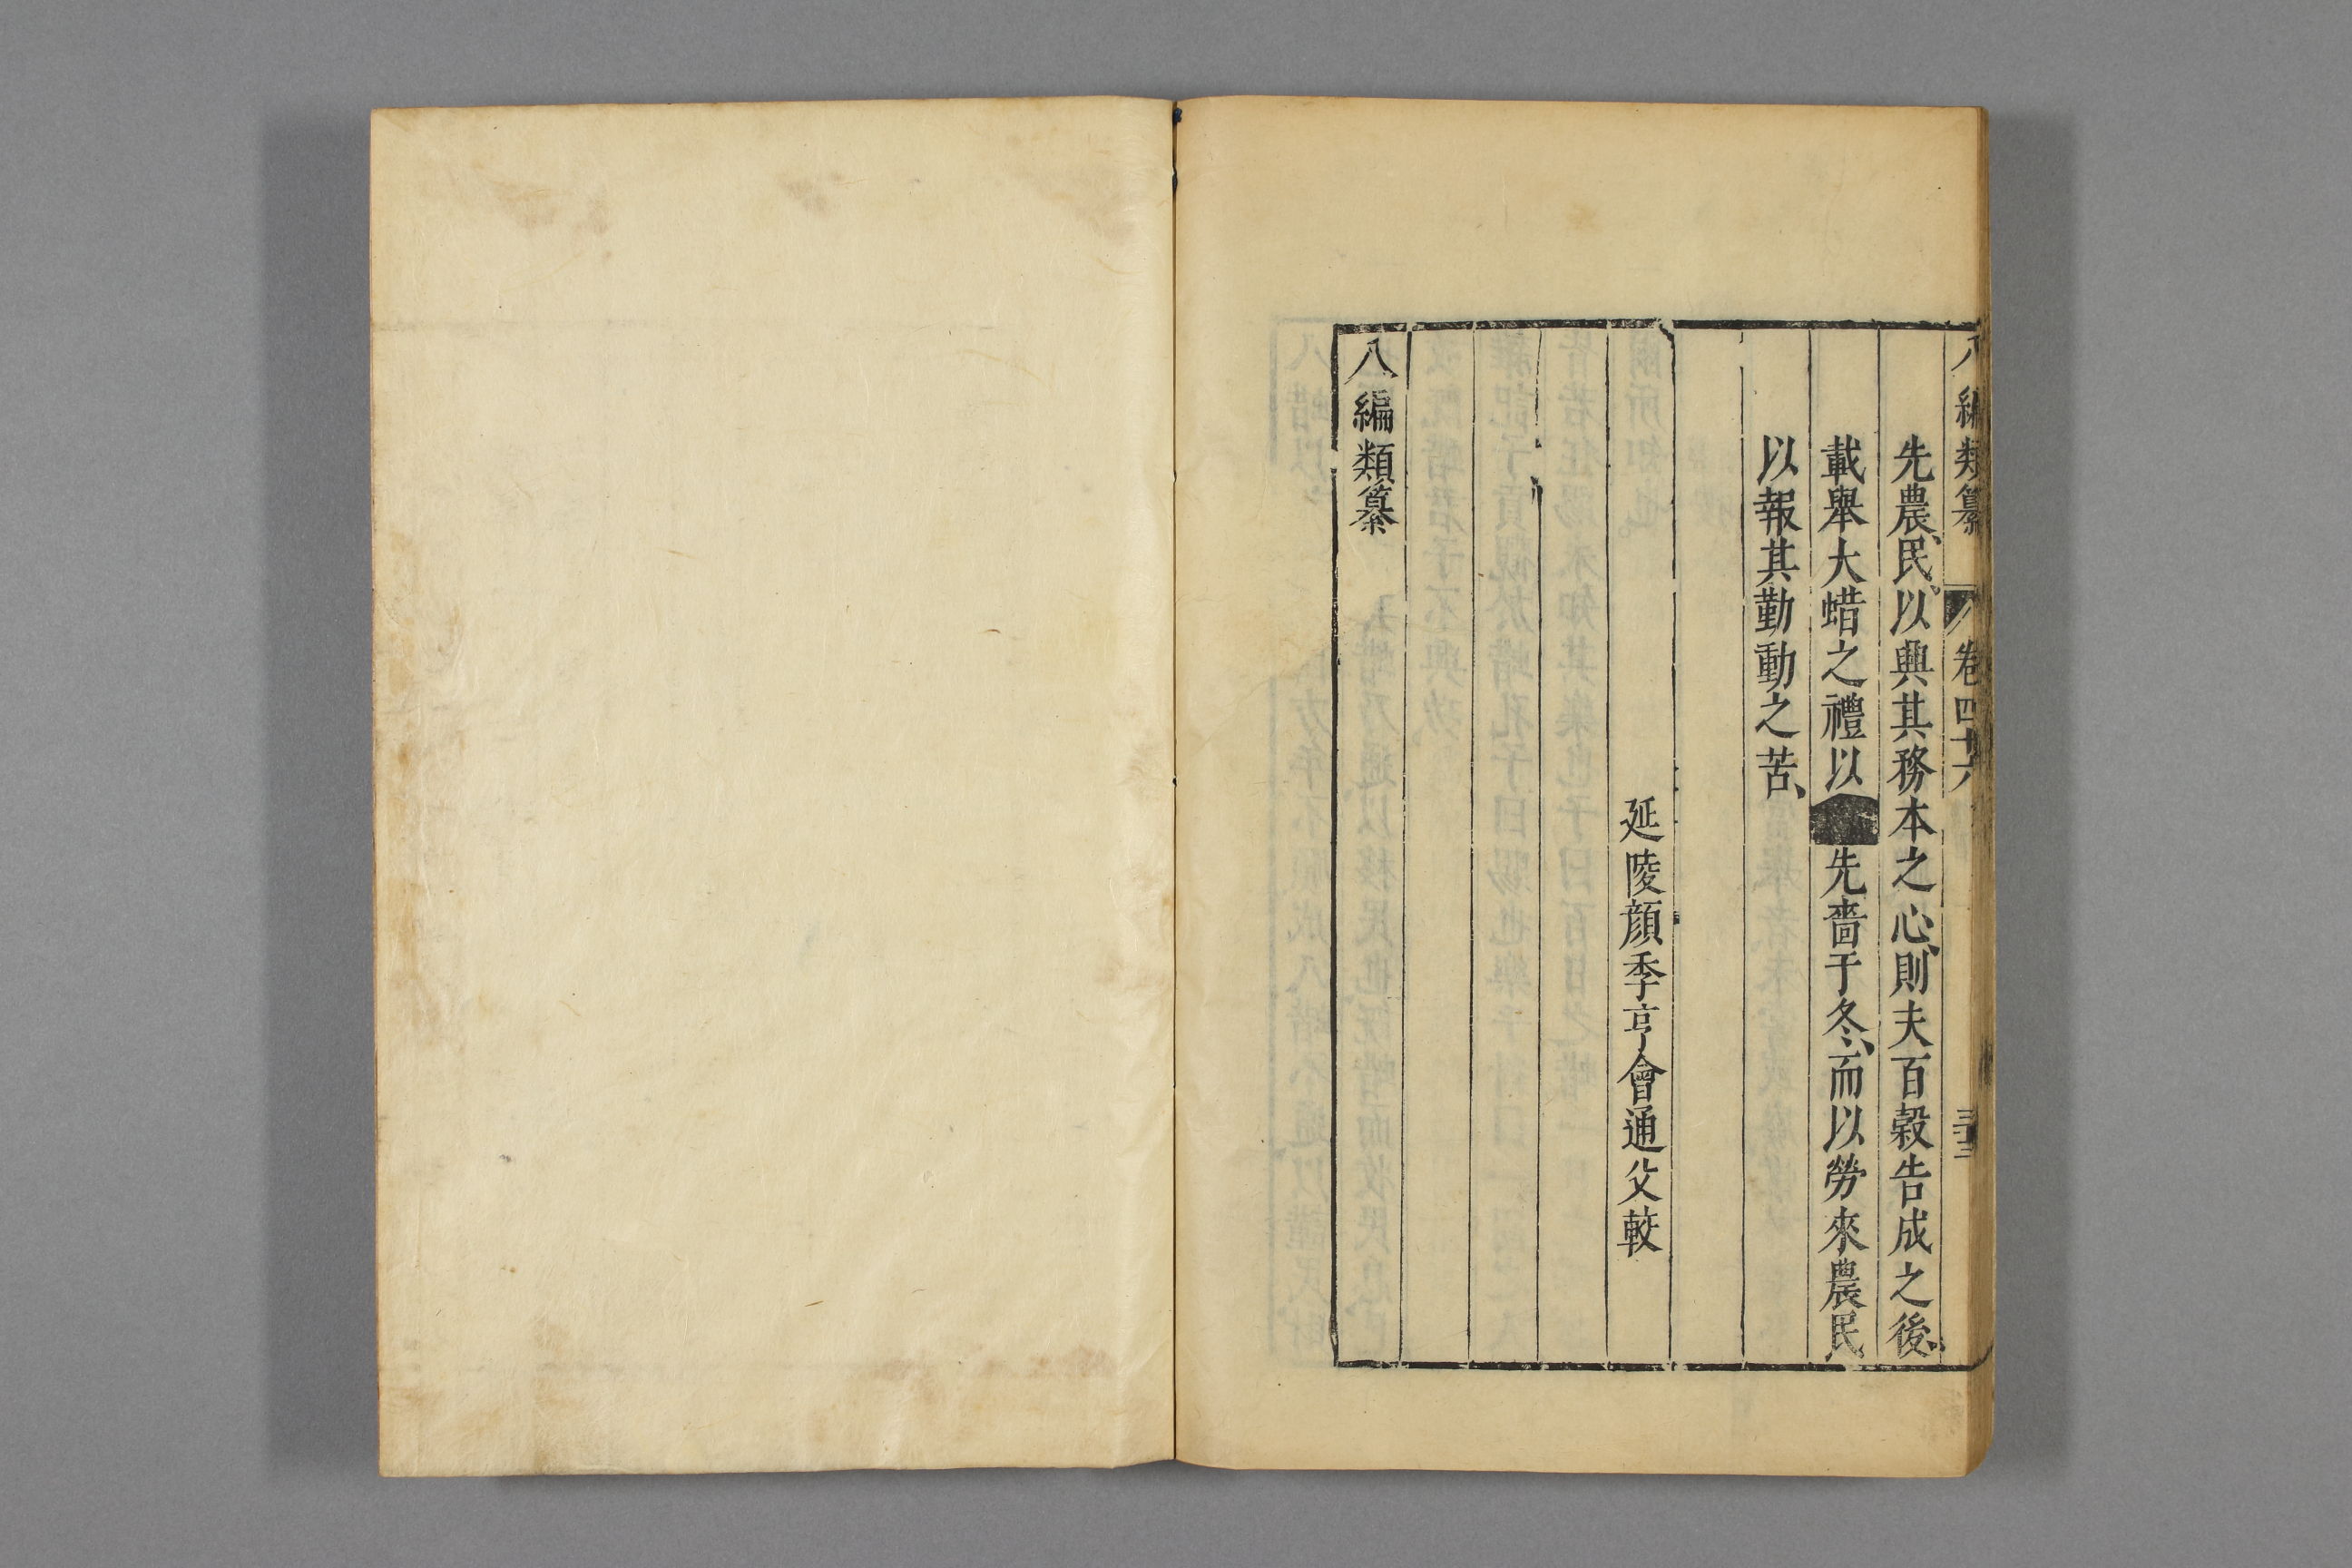 八編類纂 卷四十六 三十三
先農、民、以興其務本之心、則夫百穀告成之後、
載舉大蜡之禮以先嗇于冬、而以勞來農民
以報其勤動之苦、
延陵顔季亨會通父較
八編類纂